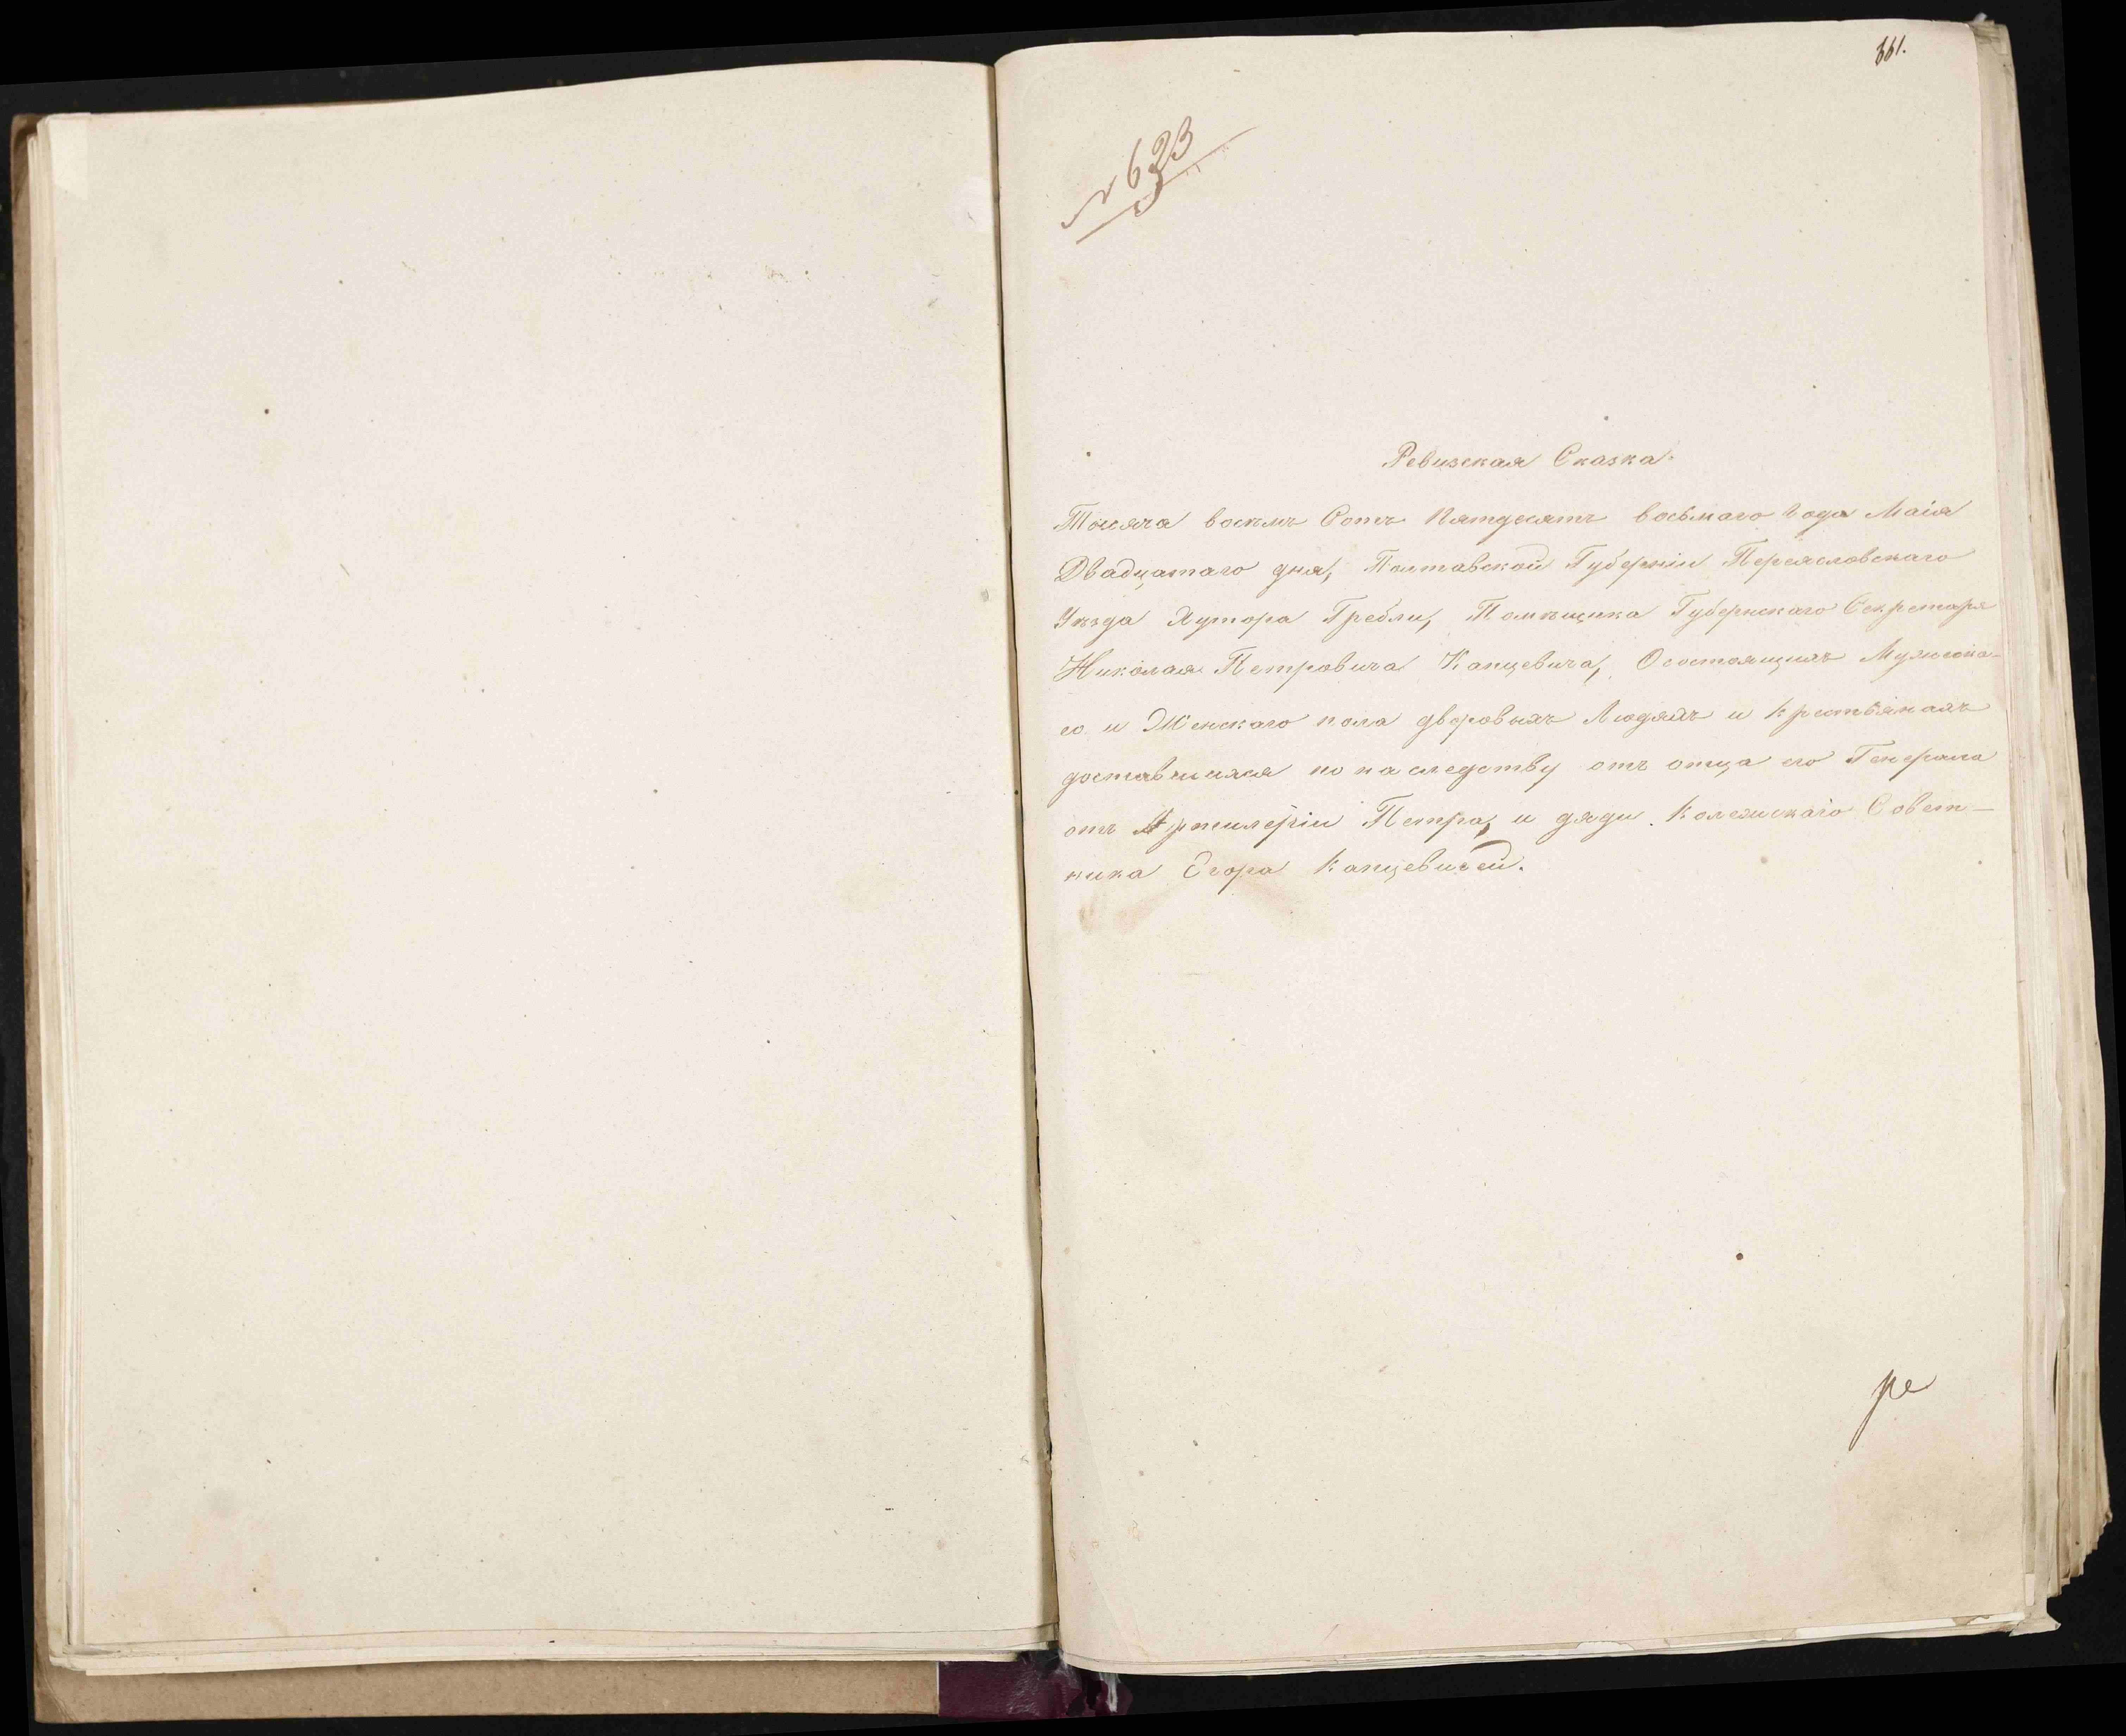 661.
№ 623
Ревизская Сказка.
Тысяча восемь Сотъ Пятдесятъ восьмаго Года Маія
Двадцатаго дня, Полтавской Губерніи Переясловскаго
Уѣзда Хутора Гребли, Помѣщика Губернскаго Секретаря
Николая Петровича Капцевича, О состоящихъ Мужска-
го и Женскаго пола дворовыхъ Людяхъ и крестьянахъ
доставшихся по наследству отъ отца его Генерала
отъ Артилеріи Петра, и дяди Колежскаго Совет-
ника Егора Капцевичей.
ре